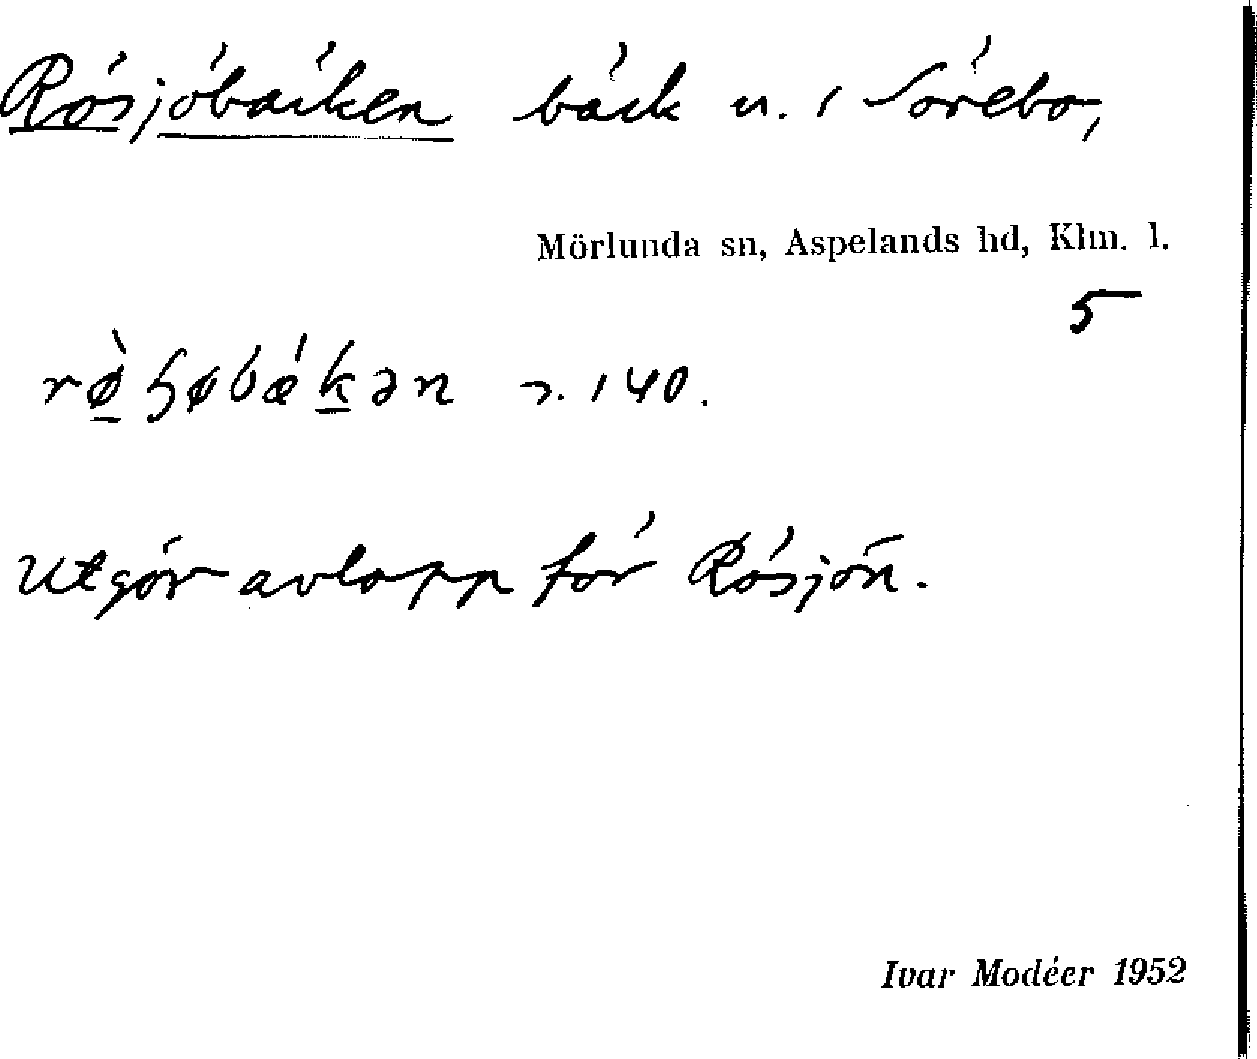 Rösjöbäcken bäck n. i Sörebo,
Mörlunda sn, Aspelands hd, Klm. l.
5
rø̀ɧøbækən 140.
Utgör avlopp för Rösjön.
Ivar Modéer 1952